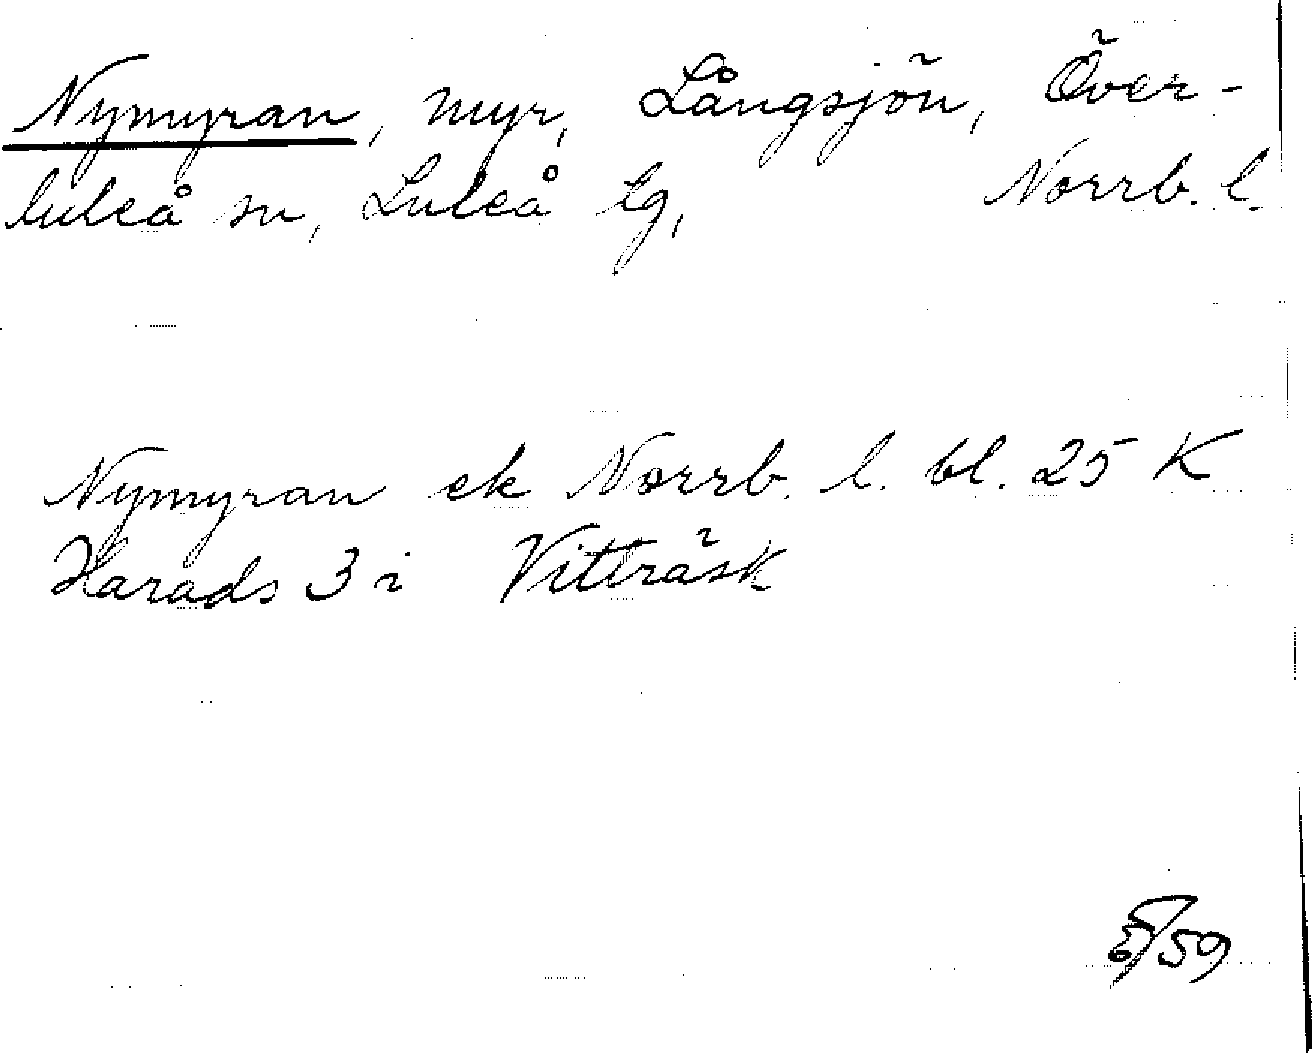 Nymyran, myr, Långsjön, Över-
luleå sn, Luleå tg, Norrb. l.
Nymyran ek Norrb. l. bl. 25 K
Harads 3 i Vitträsk
/59